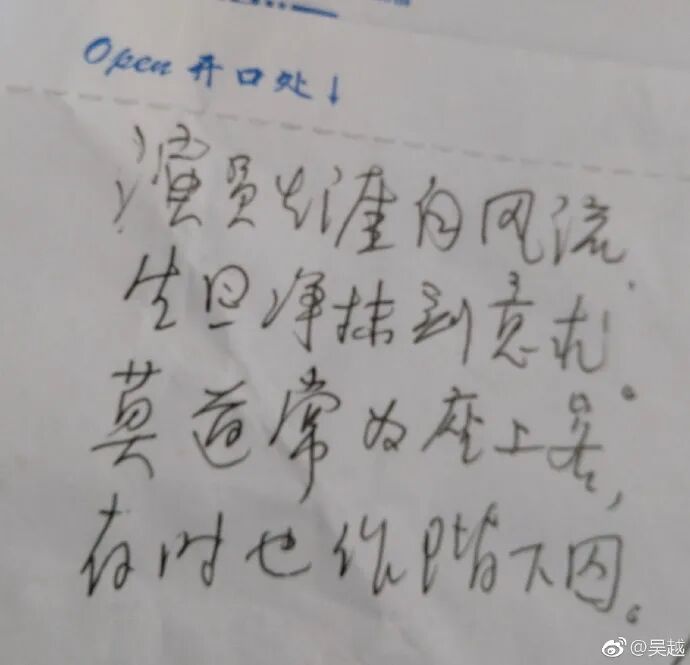 Open 开口处↓
演员生涯自风流,
生旦净抹刻意求。
莫道常为座上客,
有时也作阶下囚。
@吴越